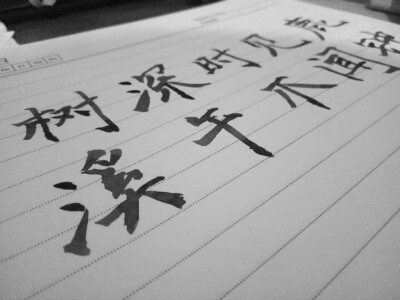 树深时见鹿
溪午不闻钟